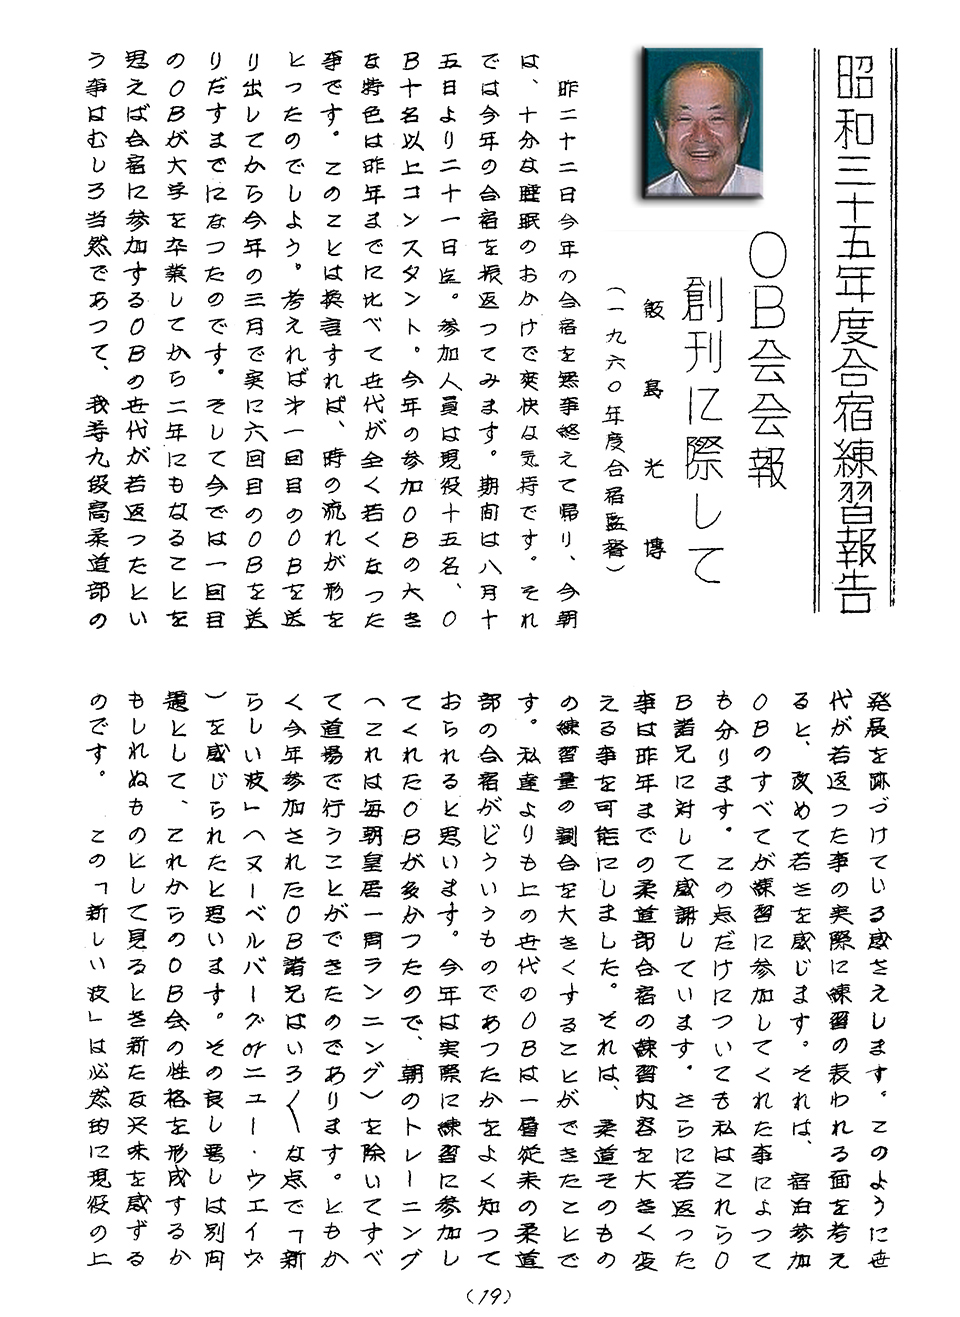 昭和三十五年度合宿練習報告
OB会会報
創刊に際して
飯島光博
(一九六〇年度合宿監督)
昨二十二日今年の合宿を無事終えて帰り、今朝
は、十分な睡眠のおかけで爽快な気持です。それ
では今年の合宿を振返つてみます。期间は八月十
五日より二十一日迄。参加人員は現役十五名、O
B十名以上コンスタント。今年の参加OBの大き
な特色は昨年までに比べて世代が全く若くなった
事です。このことは換言すれば、時の流れが形を
とつたのでしよう。考えれば才一回目のOBを送
り出してから今年の三月で実に六回目のOBを送
りだすまでになつたのです。そして今では一回目
のOBが大学を卒業してから二年にもなることを
思えば合宿に参加するOBの世代が若返つたとい
う事はむしろ当然であつて、我等九段高柔道部の
発展を跡づけている感さえします。このように世
代が若返つた事の実際に練習の表われる面を考え
ると、改めて若さを感じます。それは、宿泊参加
OBのすべてが練習に参加してくれた事によつて
も分ります。この点だけについても私はこれらO
B諸兄に対して感謝しています。さらに若返つた
事は昨年までの柔道部合宿の練習内容を大きく変
える事を可能にしました。それは、柔道そのもの
の練習量の割合を大きくすることができたことで
す。私達よりも上の世代のOBは一層従来の柔道
部の合宿がどういうものであつたかをよく知つて
おられると思います。今年は実際に練習に参加し
てくれたOBが多かつたので、朝のトレーニング
(これは毎朝皇居一周ランニング)を除いてすべ
て道場で行うことができたのであります。ともか
く今年参加されたOB諸兄はいろ〱な点で「新
らしい波」(ヌーベルバーグorニュー・ウエイヴ
)を感じられたと思います。その良し悪しは別问
題として、これからのOB会の性格を形成するか
もしれぬものとして見るとき新たな興味を感ずる
のです。この「新しい波」は必然的に現役の上
(19)